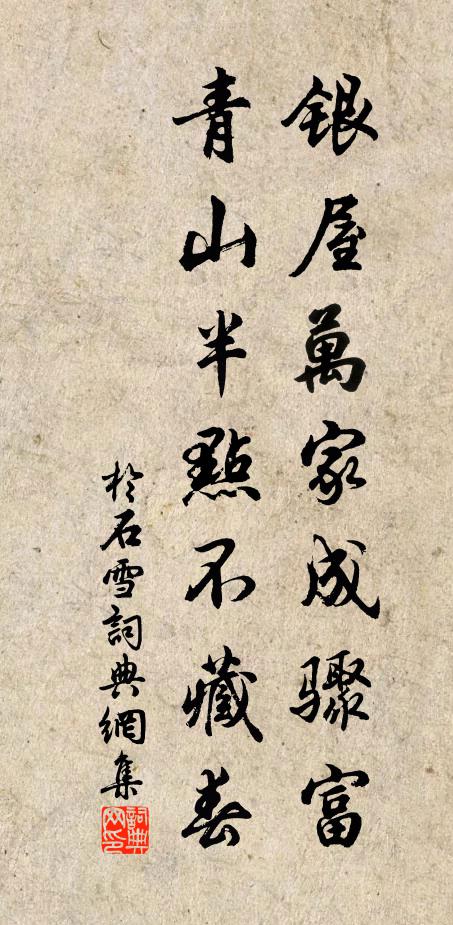 銀屋萬家成驟富
青山半點不藏春
於石雪詞典網集
詞典網印